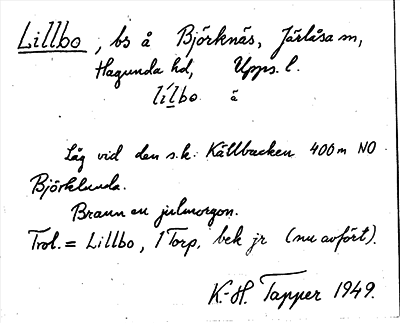 Lillbo, bs å Björknäs, Järlåsa sn,
Hagunda hd, Upps. l.
lilbo ä
Låg vid den s.k. Källbacken 400 m NO
Björklunda.
Brann en julmorgon.
Trol. = Lillbo, 1 Torp, bek jr (nu avfört).
K.-H. Tapper 1949.